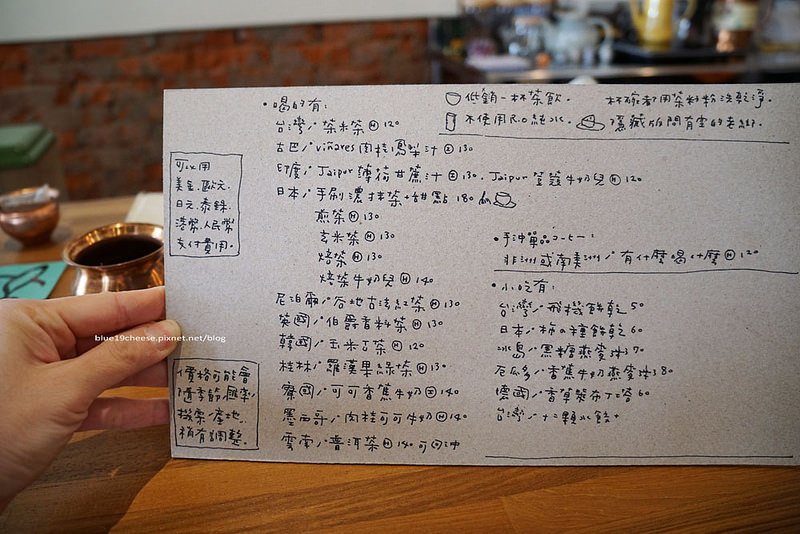 •喝的有:
台灣/茶米茶 H 120
古巴/viñares 肉桂鳳梨汁 I 130
印度/Jaipur 薄荷甘蔗汁 I 130. Jaipur 荳蔻牛奶兒 H 120
日本/手刷濃抹茶+甜點 180
煎茶 H 130
玄米茶 H 130
焙茶 H 130
焙茶牛奶兒 H 140
尼泊爾/谷地古法紅茶 H 130
英國/伯爵香料茶 H 130
韓國/玉米丁茶 H 120
桂林/羅漢果綠茶 H 130
寮國/可可香蕉牛奶 I 140
墨西哥/肉桂可可牛奶 H 140
雲南/普洱茶 H 140 可回沖
可以用
美金.歐元.
日元.泰銖.
港幣.人民幣
支付費用。
價格可能會
隨季節.匯率.
機票/產地.
稍有調整.
低銷一杯茶飲.
不使用R.O純水.
杯碗都用茶籽粉洗乾淨.
隱藏版問有空的老闆.
•手沖單品コーヒー:
非洲或南美洲/有什麼喝什麼 H 120
•小吃有:
台灣/飛機餅乾 50
日本/柿の種餅乾 60
冰島/黑糖燕麥 70
厄瓜多/香蕉牛奶燕麥 80
德國/香草萊布丁 60
台灣/十二顆水餃
blue19cheese.pixnet.net/blog